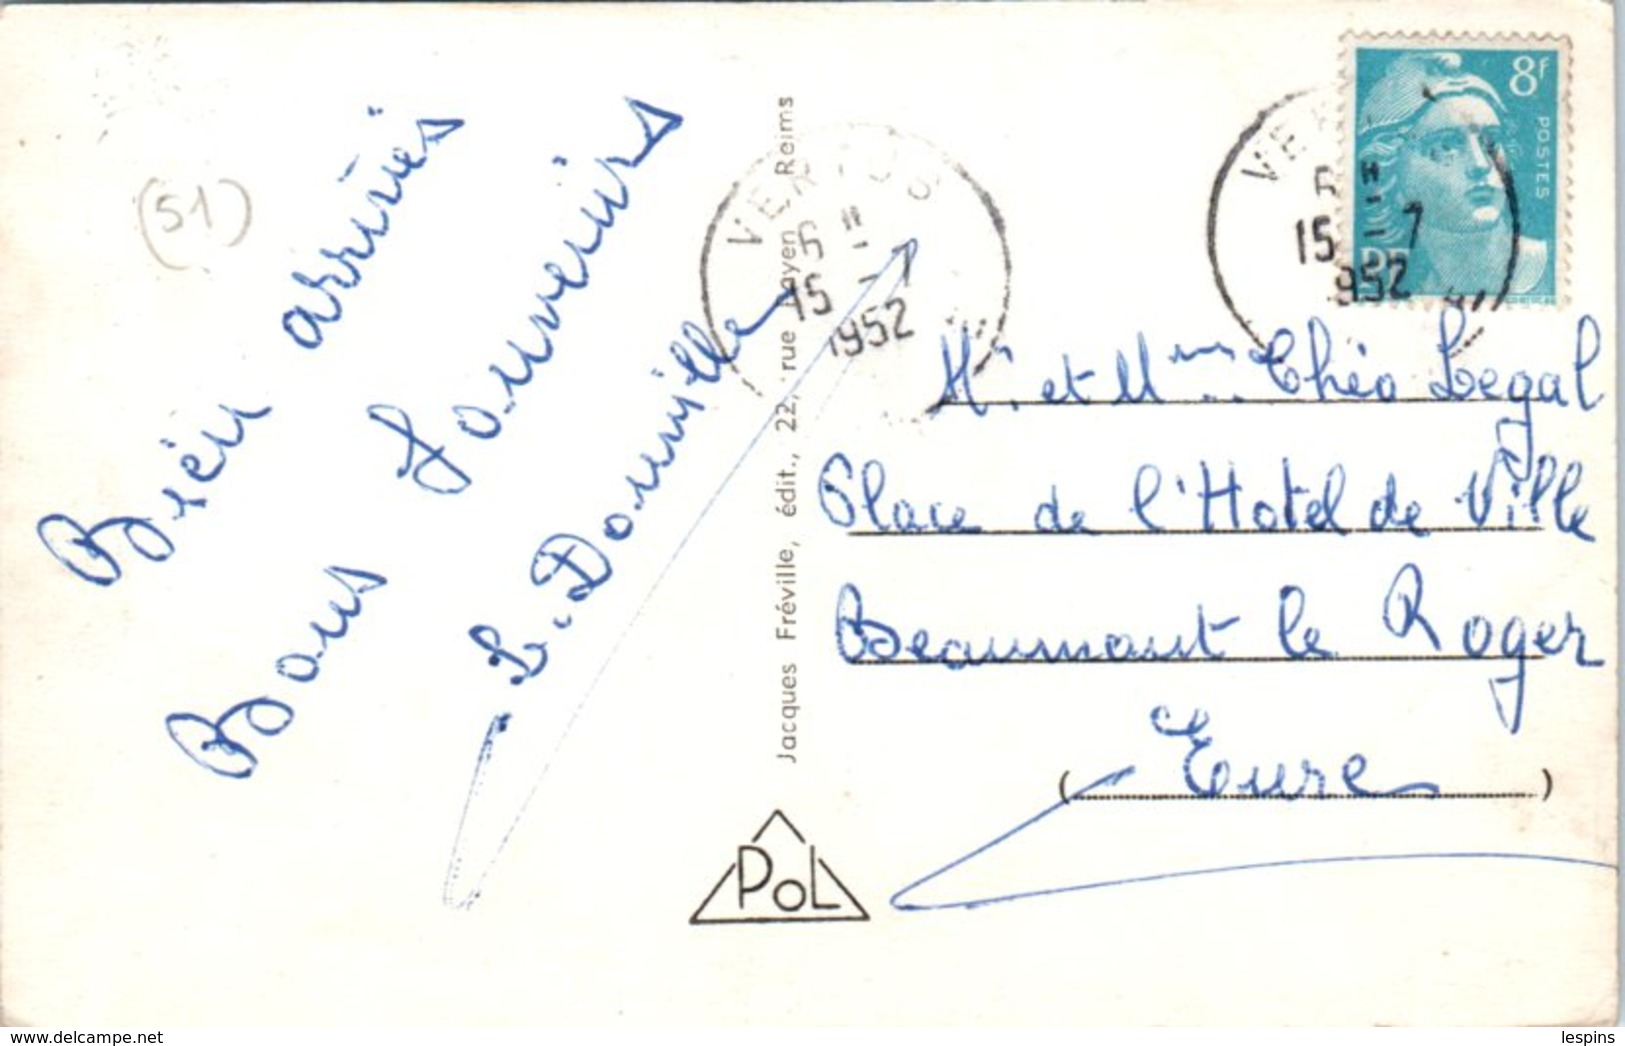 (51)
Bien arrivés
Bons souvenirs
L. Douville
Jacques Fréville, édit., 22, rue Payen Reims
VERTUS
6 H
15 -7
1952
8f
POSTES
VER
6 H
15 -7
1952
Mr. et Mme Théo Legal
Place de l'Hotel de Ville
Beaumont le Roger
(Eure)
POL
delcampe.net
lespins